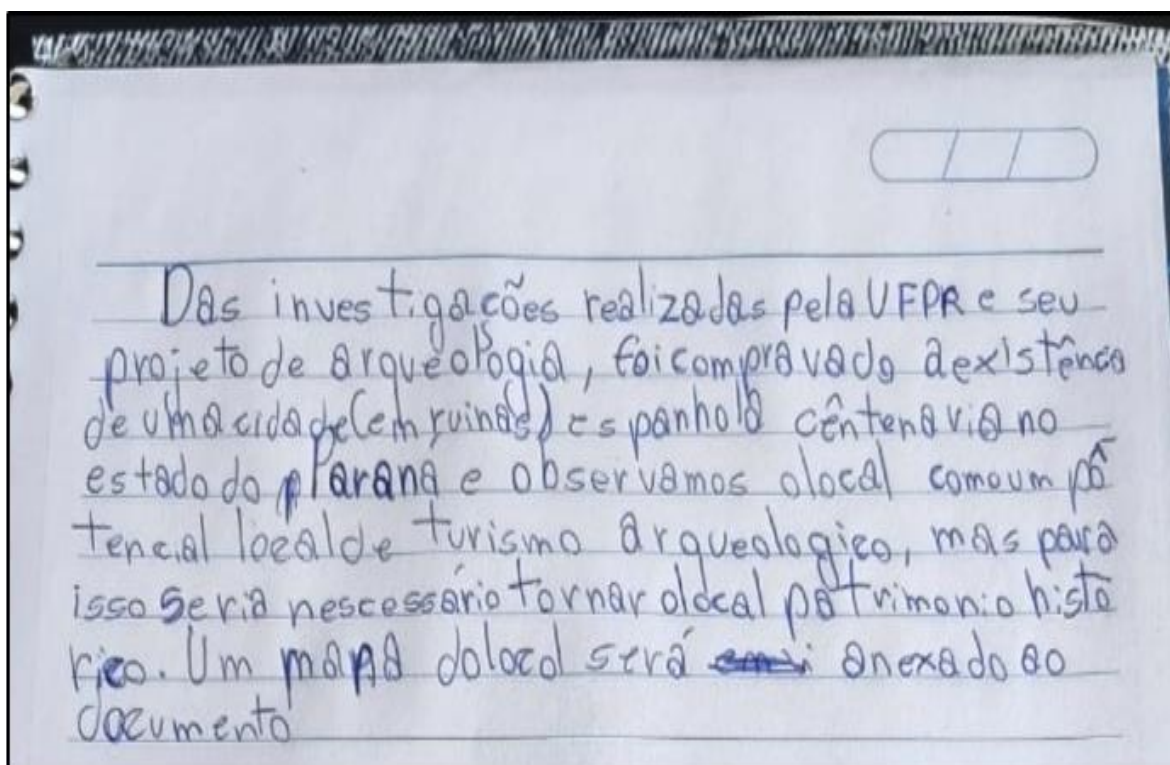 Das investigações realizadas pela UFPR e seu
projeto de arqueologia, foi compravado a existênca
de uma cidade (em ruinas) espanhola cêntenaria no
estado do Paraná e observamos o local como um pô
tencial local de turismo arqueologico, mas para
isso seria nescessário tornar o local patrimonio histó
rico. Um mapa do local será anexado ao
documento